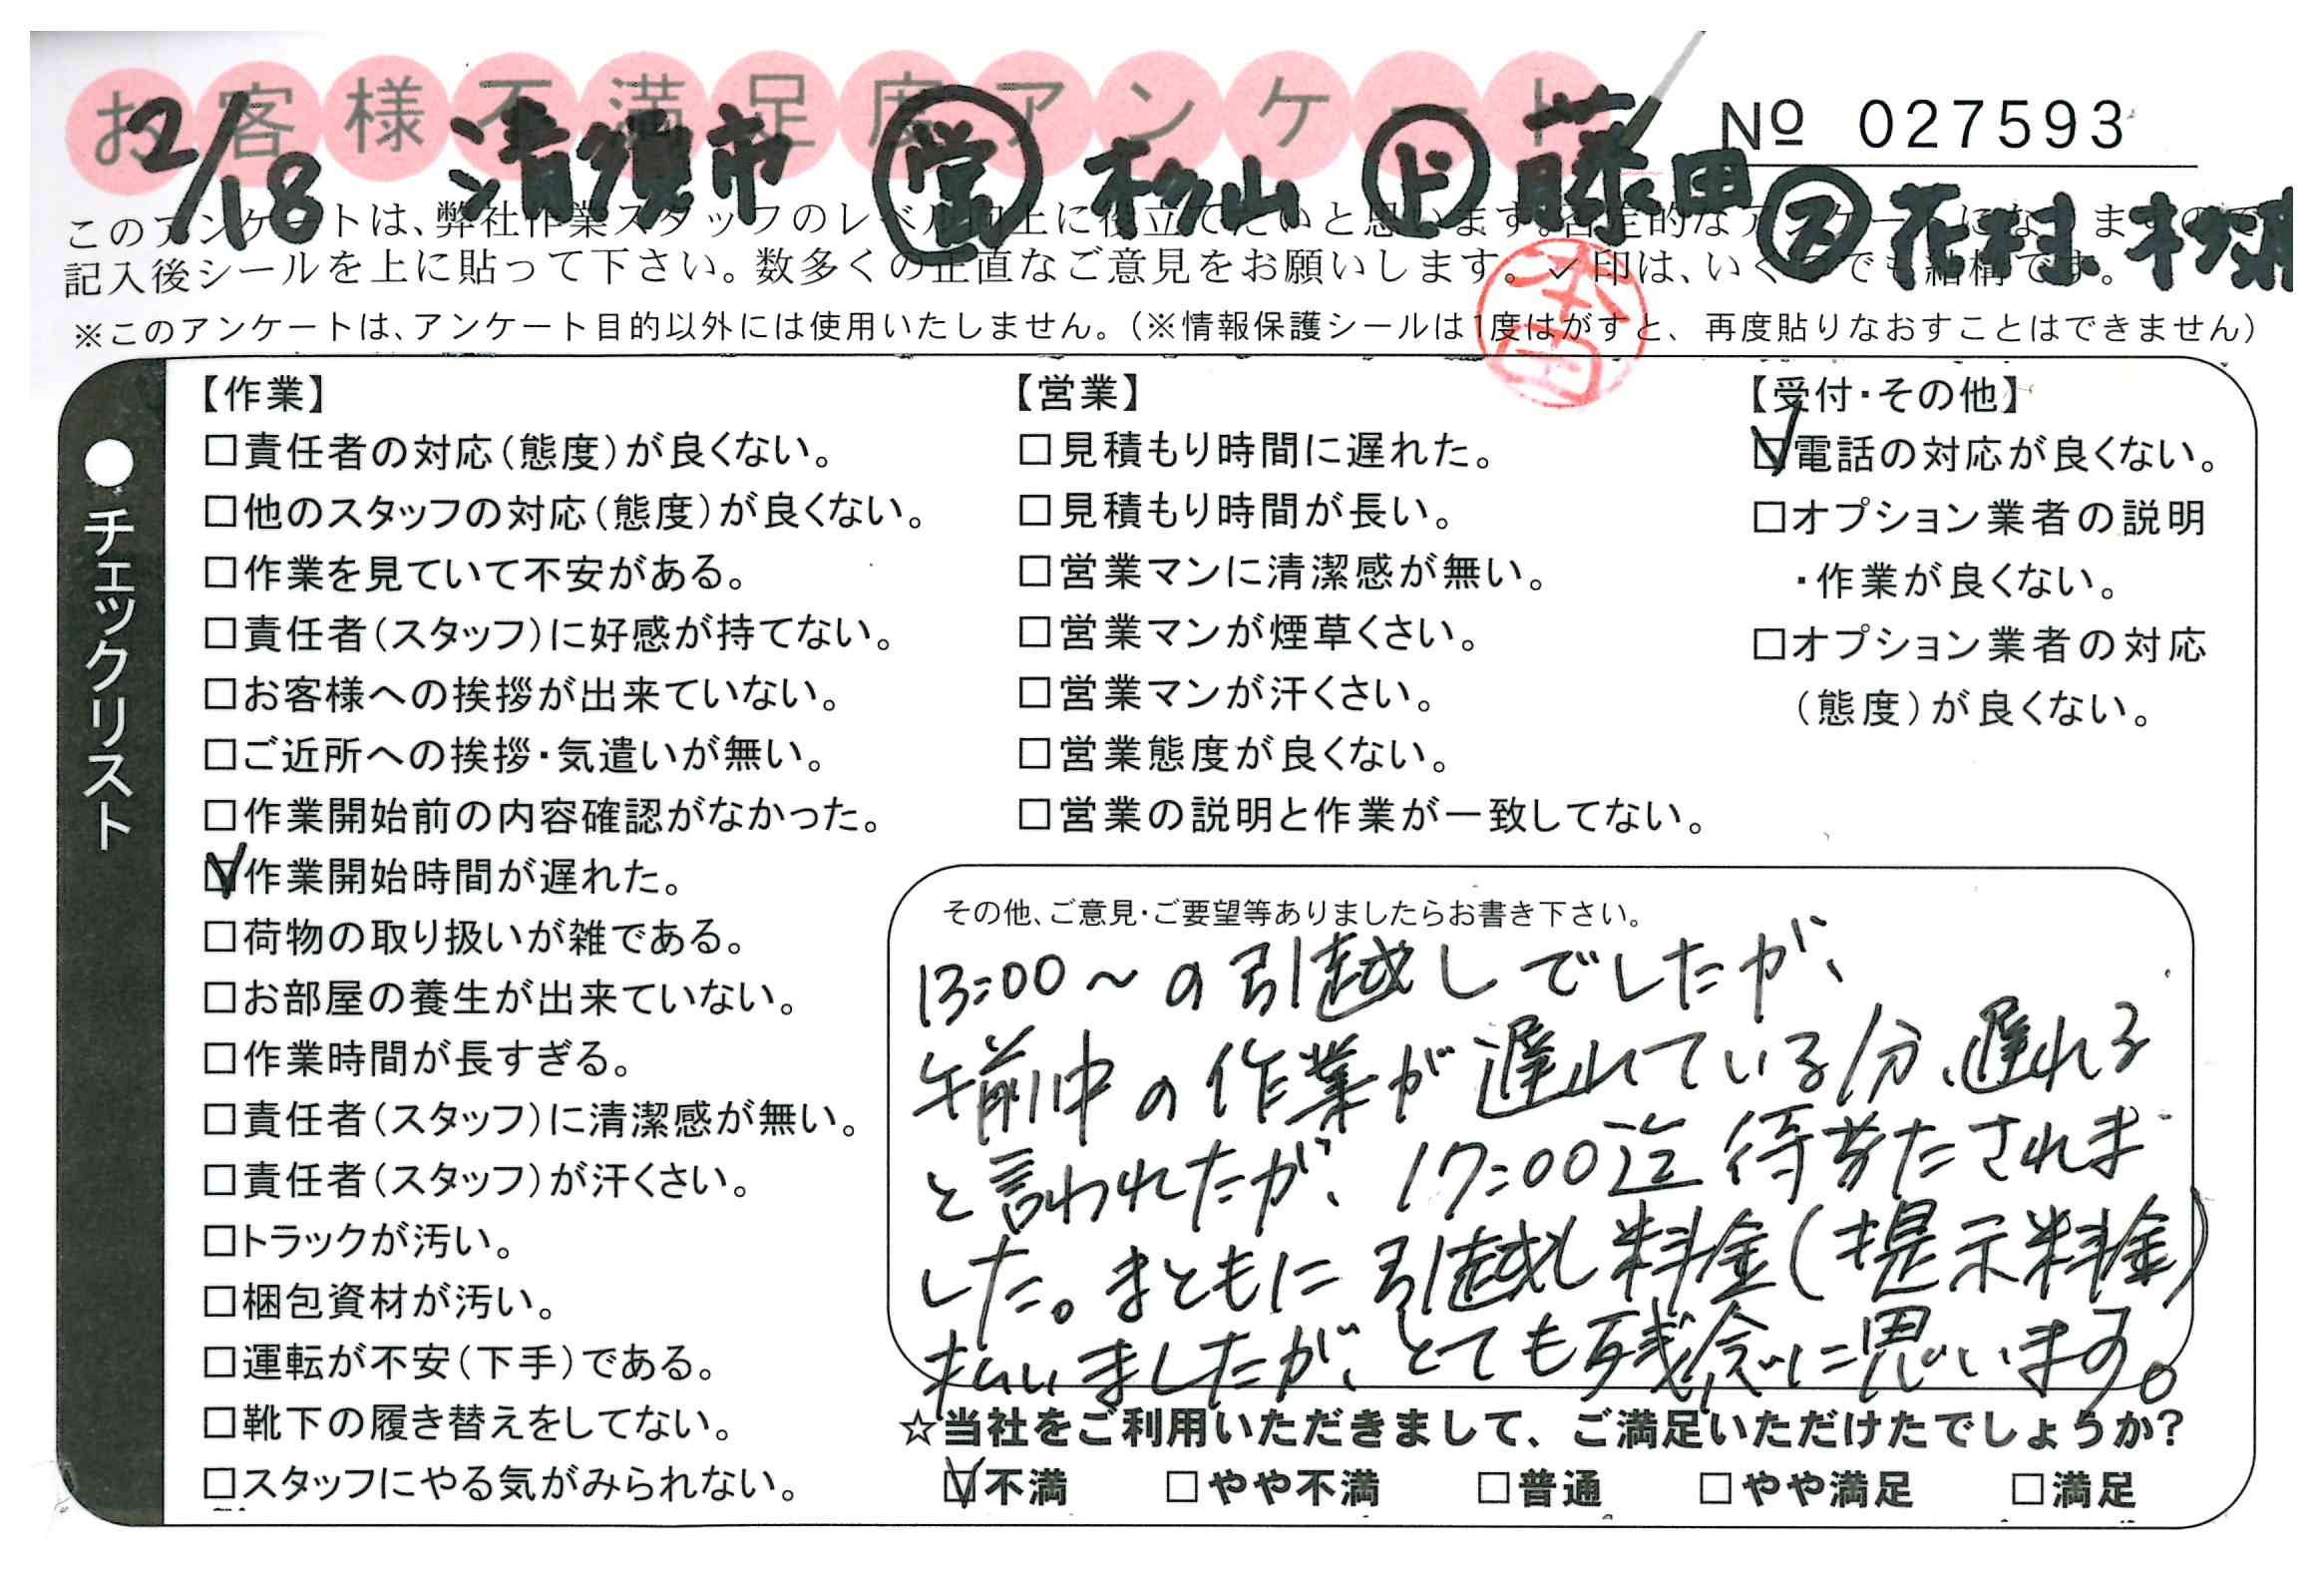 お客様不満足度アンケート
№ 027593
2/18 清須市 営 杉山 上 藤田 ス 花村
このアンケートは、弊社作業スタッフのレベル向上に役立てたいと思います。否定的なアンケートになりますので
記入後シールを上に貼って下さい。数多くの正直なご意見をお願いします。✓印は、いくつでも結構です。
※このアンケートは、アンケート目的以外には使用いたしません。（※情報保護シールは1度はがすと、再度貼りなおすことはできません）
本田
●チェックリスト
【作業】
□責任者の対応（態度）が良くない。
□他のスタッフの対応（態度）が良くない。
□作業を見ていて不安がある。
□責任者（スタッフ）に好感が持てない。
□お客様への挨拶が出来ていない。
□ご近所への挨拶・気遣いが無い。
□作業開始前の内容確認がなかった。
☑作業開始時間が遅れた。
□荷物の取り扱いが雑である。
□お部屋の養生が出来ていない。
□作業時間が長すぎる。
□責任者（スタッフ）に清潔感が無い。
□責任者（スタッフ）が汗くさい。
□トラックが汚い。
□梱包資材が汚い。
□運転が不安（下手）である。
□靴下の履き替えをしてない。
□スタッフにやる気がみられない。
【営業】
□見積もり時間に遅れた。
□見積もり時間が長い。
□営業マンに清潔感が無い。
□営業マンが煙草くさい。
□営業マンが汗くさい。
□営業態度が良くない。
□営業の説明と作業が一致してない。
【受付・その他】
☑電話の対応が良くない。
□オプション業者の説明
・作業が良くない。
□オプション業者の対応
（態度）が良くない。
その他、ご意見・ご要望等ありましたらお書き下さい。
13:00～の引越しでしたが、
午前中の作業が遅れている分、遅れる
と言われたが、17:00迄待たされま
した。まともに引越し料金（提示料金）
払いましたが、とても残念に思います。
☆当社をご利用いただきまして、ご満足いただけたでしょうか？
☑不満 □やや不満 □普通 □やや満足 □満足